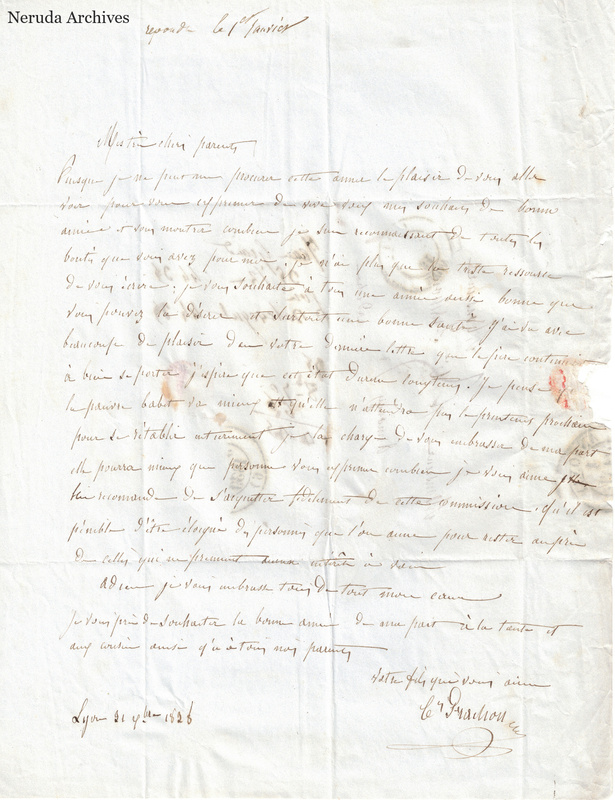 Neruda Archives
repondu le 1er Janvier
Mes très chers parents
Puisque je ne peut me procurer cette année le plaisir de vous aller
voir pour vous exprimer de vive voix mes souhaits de bonne
année et vous montrer combien je suis reconnaissant de toutes les
bontés que vous avez pour moi. je n'ai plus que la triste ressource
de vous écrire. je vous souhaite à tous une année aussi bonne que
vous pouvez la désirer et surtout une bonne santé j'ai vu avec
beaucoup de plaisir dans votre dernière lettre que le père continuait
à bien se porter j'espère que cet état durera longtems. Je pense
la pauvre babet va mieux et qu'elle n'attendra pas le printems prochain
pour se rétablir entierement je la charge de vous embrasser de ma part
elle pourra mieux que personne vous exprimer combien je vous aime
lui recomande de s'acquitter fidelement de cette commission. qu'il est
pénible d'être éloigné des personnes que l'on aime pour rester auprès
de celles qui ne prennent aucun intérêt à vous
Adieu je vous embrasse tous de tout mon cœur
Je vous prie de souhaiter la bonne année de ma part à la tante et
aux cousins ainsi qu'à tous nos parents
Votre fils qui vous aime
Lyon 31 1826